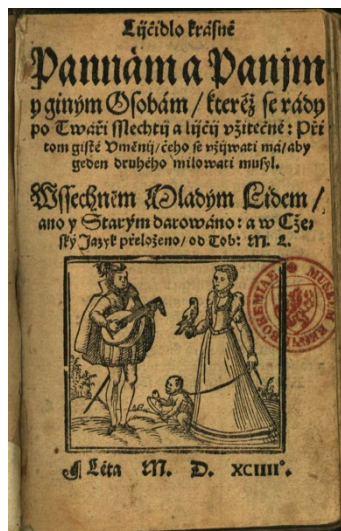 Lijčidlo krásné
Pannám a Panjm
y giným Osobám / kteréž se rády
po Twáři Mechtij a ljčij vžitečné: Při
tom gisté Vměnij / čeho se vžijwati má / aby
geden druhého milowati musyl.
Wssechněm Mladým Lidem /
ano y Starým darowáno: a w Cže-
ský Jazyk přeloženo / od Tob: M. L.
Léta M. D. XCIIII°.
MUSEUM REGNI BOHEMIAE